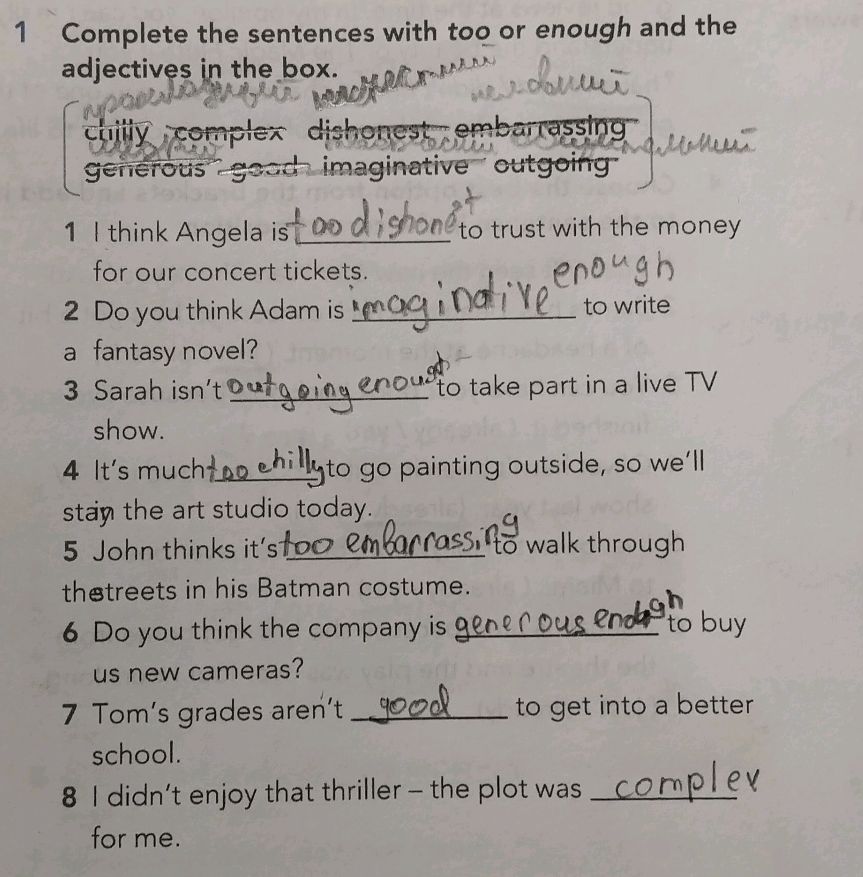 1 Complete the sentences with too or enough and the
adjectives in the box.
chilly complex dishonest embarrassing
generous good imaginative outgoing
1 I think Angela is too dishonest to trust with the money
for our concert tickets.
2 Do you think Adam is imaginative enough to write
a fantasy novel?
3 Sarah isn't outgoing enough to take part in a live TV
show.
4 It's much too chilly to go painting outside, so we'll
stay in the art studio today.
5 John thinks it's too embarrassing to walk through
the streets in his Batman costume.
6 Do you think the company is generous enough to buy
us new cameras?
7 Tom's grades aren't good to get into a better
school.
8 I didn't enjoy that thriller – the plot was complex
for me.